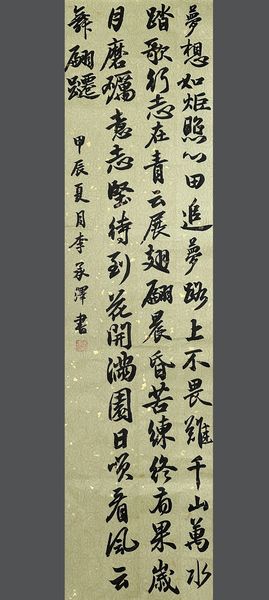 夢想如炬照心田追夢路上不畏難千山萬水
踏歌行志在青云展翅翩晨昏苦練終有果歲
月磨礪意志堅待到花開滿園日咲看風云
舞翩躚
甲辰夏月李承澤書